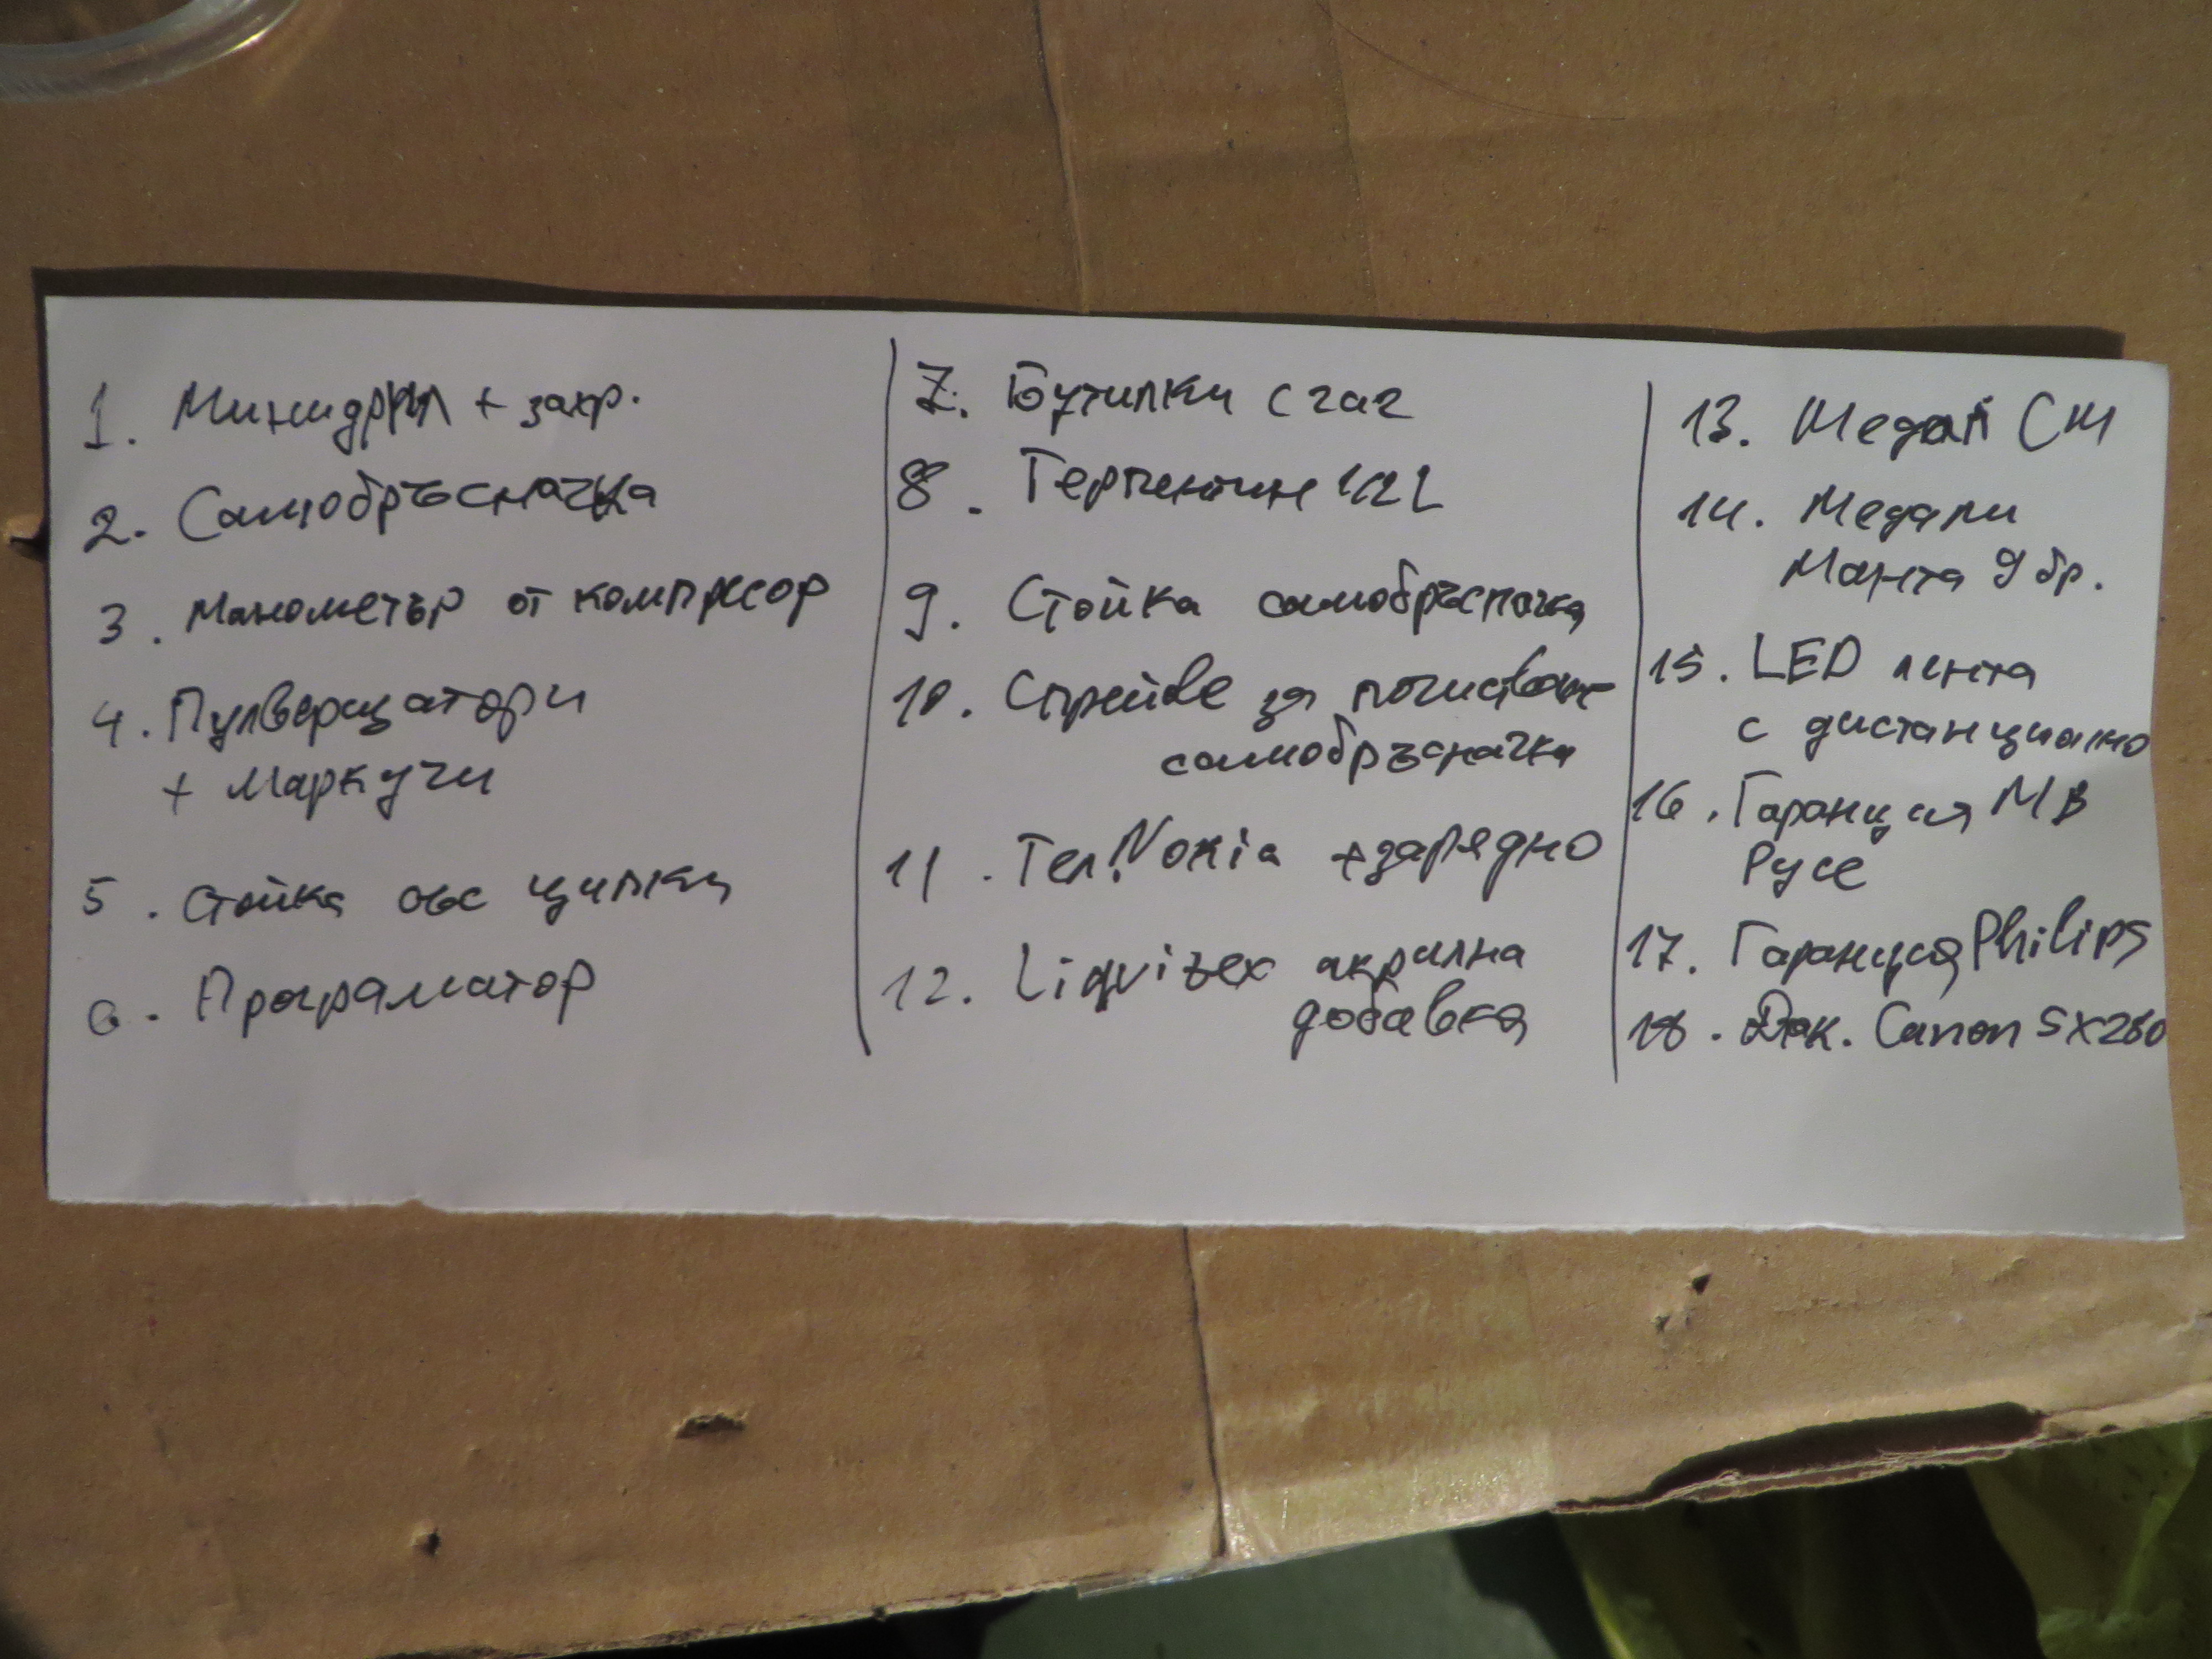 1. Минидрил + захр.
2. Самобръсначка
3. Манометър от компресор
4. Пулверизатори
+ Маркучи
5. Стойка със щипки
6. Програматор
7. Бутилки с газ
8. Терпентин 1/2 L
9. Стойка самобръсначка
10. Спрейве за почистване
самобръсначка
11. Тел. Nokia + зарядно
12. Liqvitex акрилна
добавка
13. Медал СМ
14. Медали
Манта 9 бр.
15. LED лента
с дистанционно
16. Гаранция MB
Русе
17. Гаранция Philips
18. Док. Canon SX280